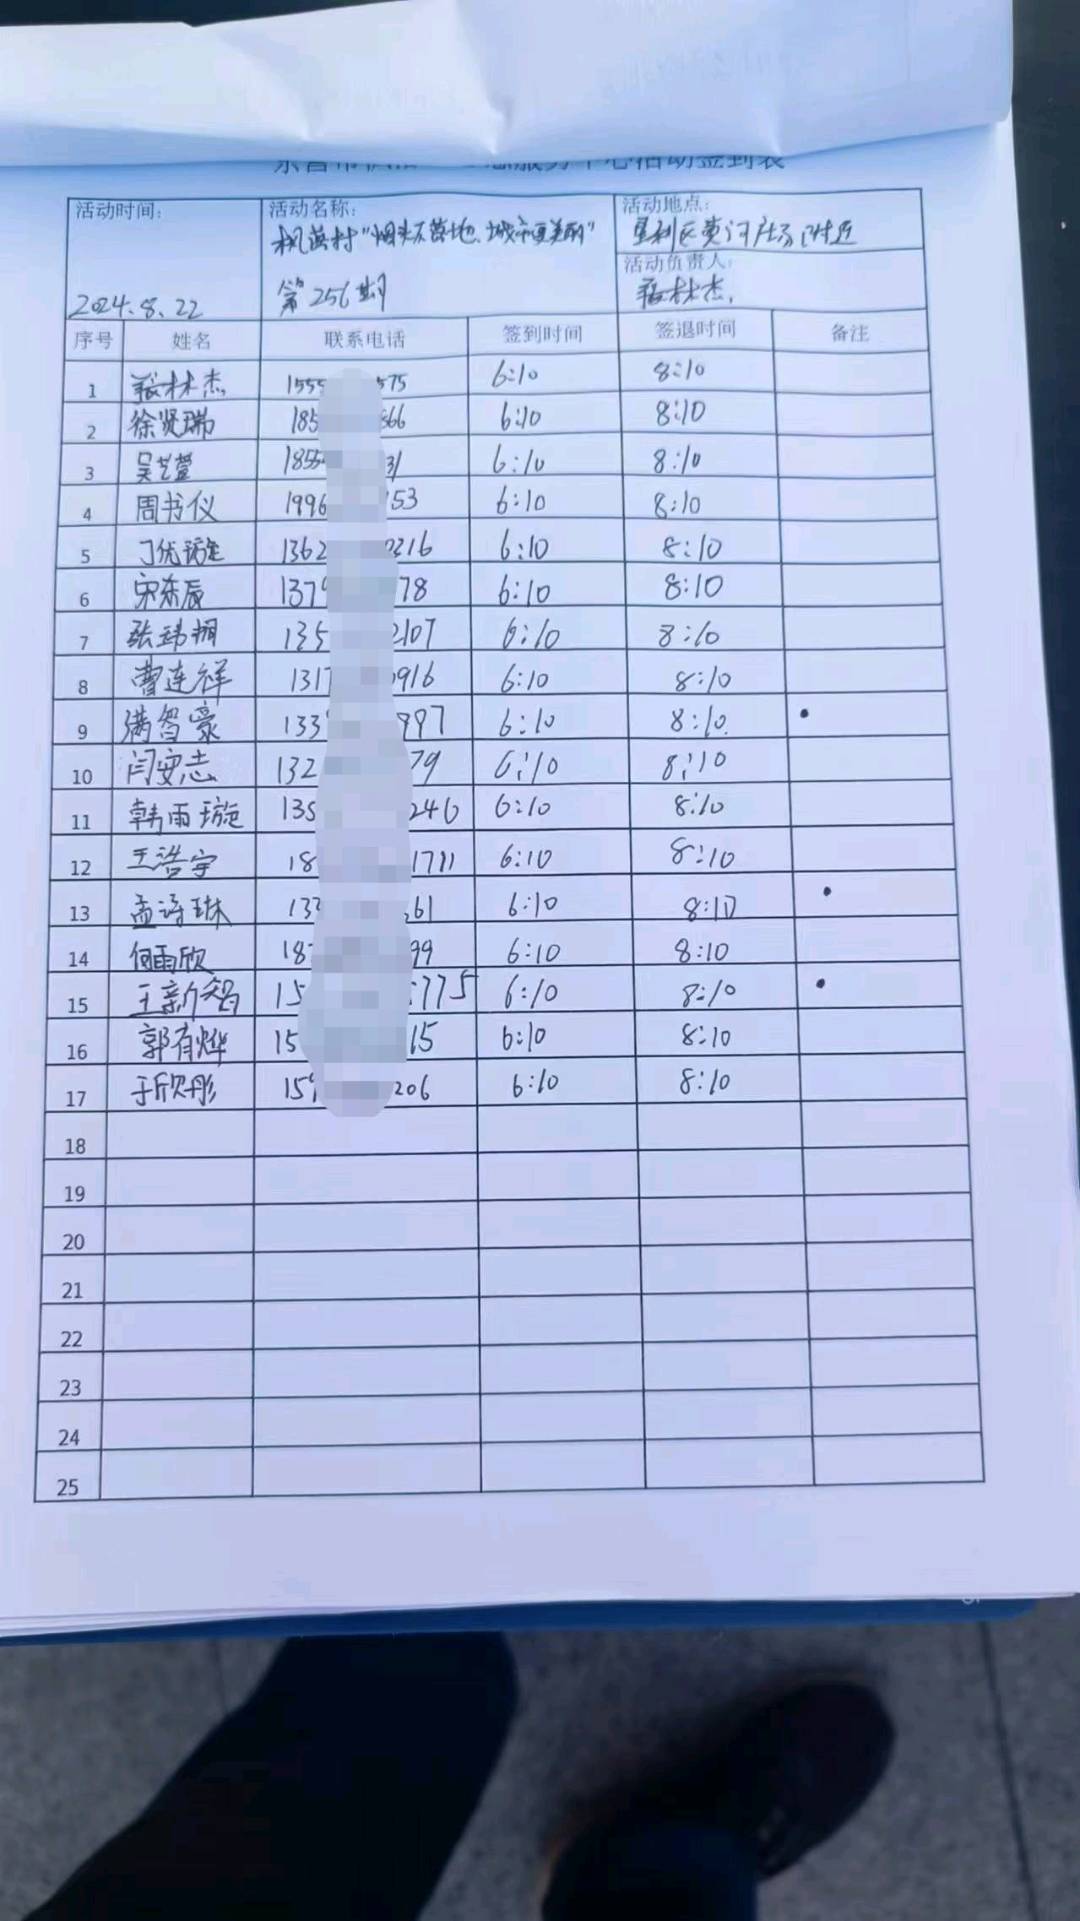 活动时间:
2024.8.22
活动名称:
枫蓝村"烟头不落地、城市更美丽"
第256期
活动地点:
垦利区黄河广场附近
活动负责人:
林杰
序号 姓名 联系电话 签到时间 签退时间 备注
1 林杰 1555 575 6:10 8:10
2 徐贤瑞 185 866 6:10 8:10
3 吴艺萱 1855 31 6:10 8:10
4 周书仪 1996 153 6:10 8:10
5 丁优璇 1362 0216 6:10 8:10
6 宋东辰 137 78 6:10 8:10
7 张玮桐 135 2107 6:10 8:10
8 曹连祥 1317 0916 6:10 8:10
9 满智豪 133 997 6:10 8:10
10 闫安志 132 79 6:10 8:10
11 韩雨璇 135 246 6:10 8:10
12 王浩宇 18 1711 6:10 8:10
13 孟诗琳 133 261 6:10 8:10
14 何雨欣 18 99 6:10 8:10
15 王新智 15 775 6:10 8:10
16 郭有烨 15 15 6:10 8:10
17 于欣彤 159 206 6:10 8:10
18
19
20
21
22
23
24
25